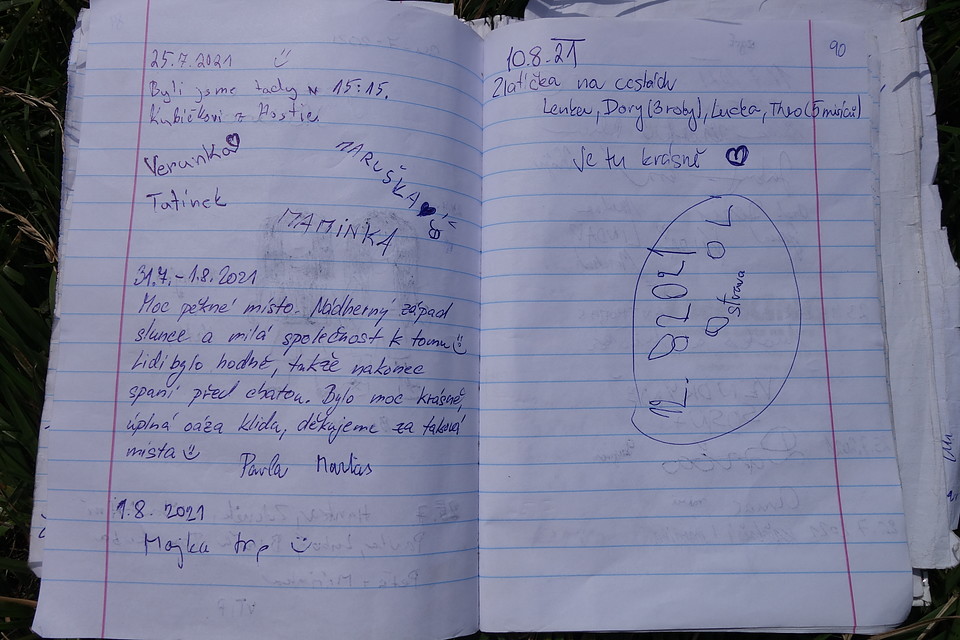 25.7.2021
Byli jsme tady v 15:15.
Kubíčkovi z Hostic
Verunka
MARUŠKA
Tatínek
MAMINKA
31.7.-1.8.2021
Moc pěkné místo. Nádherný západ
slunce a milá společnost k tomu
Lidí bylo hodně, takže nakonec
spaní před chatou. Bylo moc krásně,
úplná oáza klidu, děkujeme za taková
místa
Pavla
1.8.2021
Majka trp
90
10.8.21
Zlatíčka na cestách
Lenka, Dory (3 roky), Lucka, Theo (5 měsíců)
Je tu krásně
12.82021
OL
Ostrava